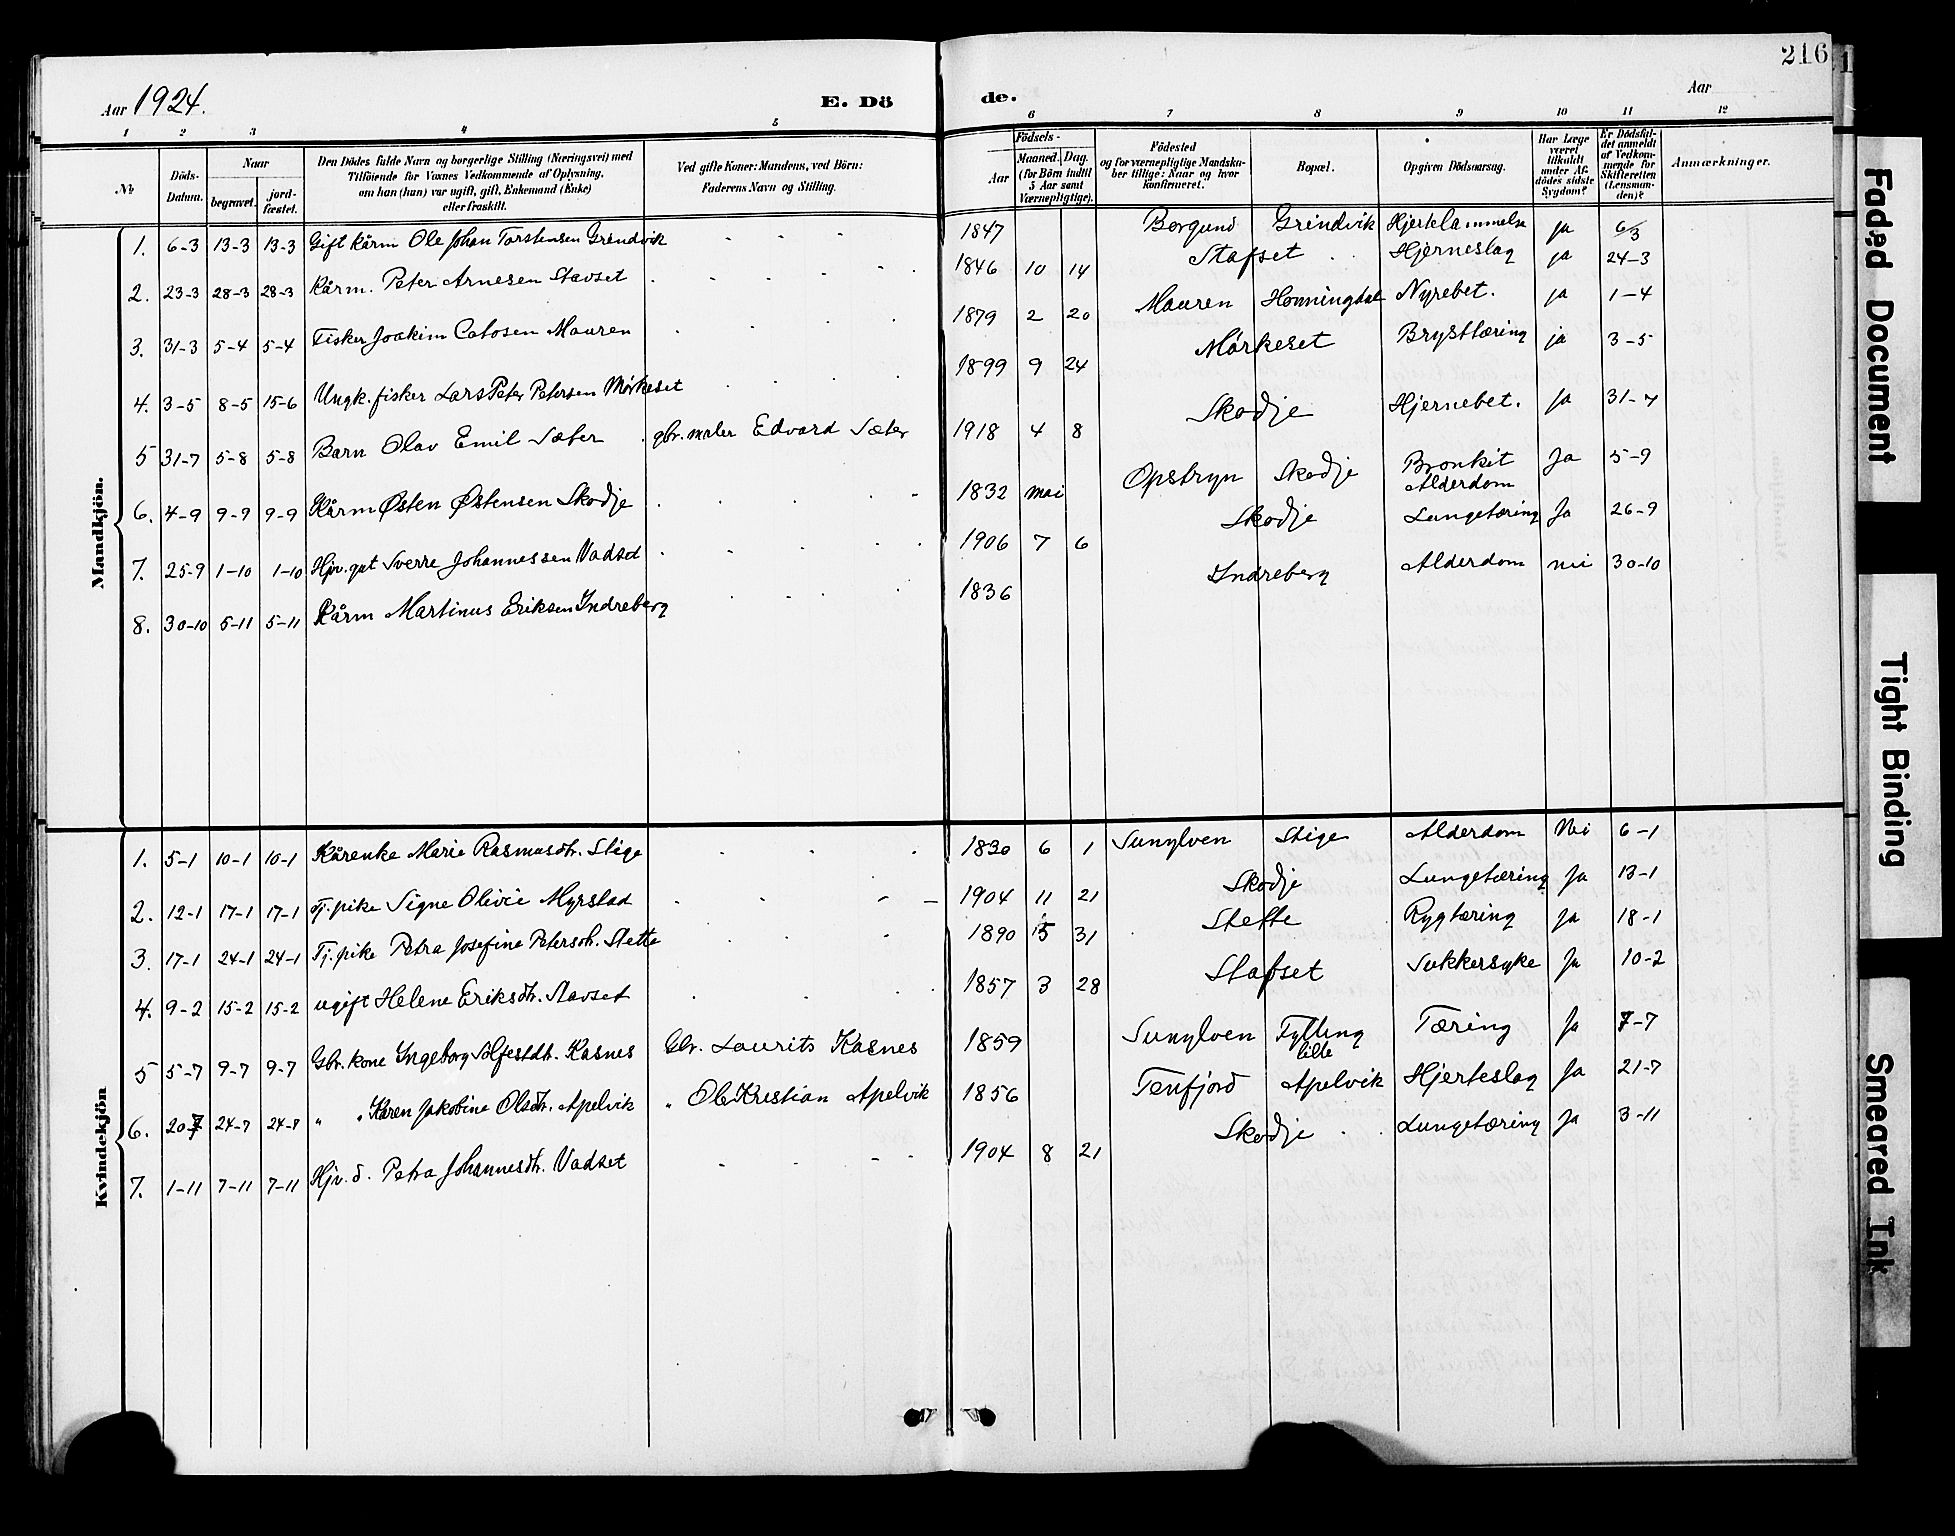 216
Aar 1924.
E. Dö de.
Aar
1 2 3 4 5 6 7 8 9 10 11 12
№
Döds-Datum.
Naar
begravet.
jord-fæstet.
Den Dödes fulde Navn og borgerlige Stilling (Næringsvei) med
Tilföiende for Voxnes Vedkommende af Oplysning,
om han (hun) var ugift, gift, Enkemand (Enke)
eller fraskilt.
Ved gifte Koner: Mandens, ved Börn:
Faderens Navn og Stilling.
Födsels-
Aar
Maaned. Dag.
(for Börn indtil
5 Aar samt
Værnepligtige).
Födested
og for værnepligtige Mandska-
ber tillige: Naar og hvor
konfirmeret.
Bopæl.
Opgiven Dödsaarsag.
Har Læge
været
tilkaldt
under Af-
dödes sidste
Sygdom?
Er Dödsfal-
det anmeldt
af Vedkom-
mende for
Skifteretten
(Lensman-
den)?
Anmærkninger.
Mandkjön.
1. 6-3 13-3 13-3 Gift kårm Ole Johan Torstensen Grindvik - - - 1847 Borgund Grindvik Hjertelammelse ja 6/3
2. 23-3 28-3 28-3 Kårm. Peter Arnesen Stavset 1846 10 14 Stafset Hjerneslag ja 24-3
3. 31-3 5-4 5-4 Fisker Joakim Mauren 1879 2 20 Mauren Honningdal Nyrebet. ja 1-4
4. 3-5 8-5 15-6 Ungk. fisker Lars Peter Petersen Mørkeset 1899 9 24 Mørkeset Brysttæring ja 3-5
5 31-7 5-8 5-8 Barn Olav Emil Sæter gbr. maler Edvard Sæter 1918 4 8 Skodje Hjernebet. ja 31-7
6. 4-9 9-9 9-9 Kårm Østen Østensen Skodje 1832 mai Opstryn Skodje Bronkit Alderdom Ja 5-9
7. 25-9 1-10 1-10 Hjv. gut Sverre Johannessen Vadset 1906 7 6 Skodje Lungetæring Ja 26-9
8. 30-10 5-11 5-11 Kårm Martinus Eriksen Indreberg 1836 Indreberg Alderdom nei 30-10
Kvindekjön
1. 5-1 10-1 10-1 Kårenke Marie Rasmusdtr. Stige 1830 6 1 Sunylven Stige Alderdom Nei 6-1
2. 12-1 17-1 17-1 Tj. pike Signe Olivie Myrstad 1904 11 21 Skodje Lungetæring Ja 13-1
3. 17-1 24-1 24-1 Tj. pike Petra Josefine Petersdtr. Stette 1890 5 31 Stette Rygtæring ja 18-1
4. 9-2 15-2 15-2 ugift Helene Eriksdtr. Stavset 1857 3 28 Stafset Sukkersyke Ja 10-2
5 5-7 9-7 9-7 Gbr. kone Ingeborg Sølfestdtr. Kasnes Gbr. Laurits Kasnes 1859 Sunylven Fylling lille Tæring Ja 7-7
6. 20 7 24-7 24-7 " " Karen Jakobine Olsdtr. Apelvik " Ole Kristian Apelvik 1856 Tenfjord Apelvik Hjerteslag Ja 21-7
7. 1-11 7-11 7-11 Hjv. d. Petra Johannesdtr. Vadset 1904 8 21 Skodje Lungetæring Ja 3-11
Faded Document
Tight Binding
Smeared Ink